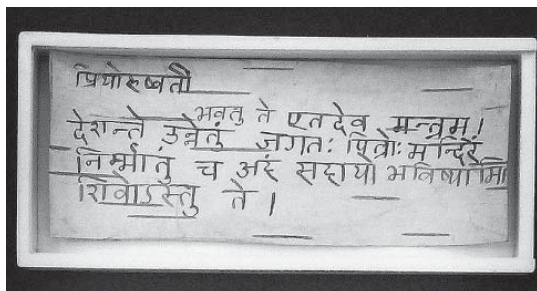 प्रियोरुष्वती
भवतु ते एतदेव मन्त्रम्।
देशान्ते उन्नेतुं जगतः पित्रोः मन्दिरं
निर्म्मातुं च अहं सहायो भविष्यामि
शिवाऽस्तु ते।